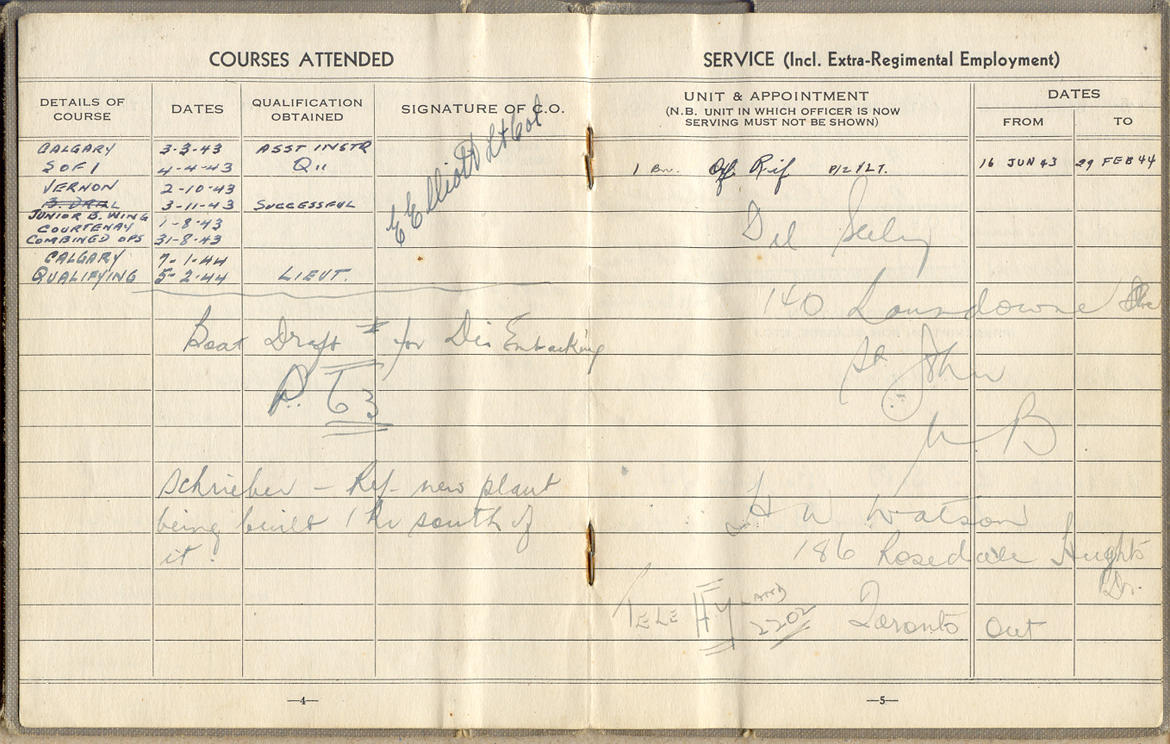 COURSES ATTENDED
DETAILS OF COURSE
DATES
QUALIFICATION OBTAINED
SIGNATURE OF C.O.
CALGARY 3-3-43 ASST INSTR
S OF I 4-4-43 Q11
E Elliott Lt Col
VERNON 2-10-43
3-11-43 SUCCESSFUL
JUNIOR B. WING
COURTENAY 1-8-43
COMBINED OPS 31-8-43
CALGARY 7-1-44
QUALIFYING 5-2-44 LIEUT.
Boat Draft # for Dis Embarking
P. 63
Schrieber - Ref- new plant
being built 1 M south of
it.
—4—
SERVICE (Incl. Extra-Regimental Employment)
UNIT & APPOINTMENT
(N.B. UNIT IN WHICH OFFICER IS NOW
SERVING MUST NOT BE SHOWN)
DATES
FROM TO
1 Bn. Rif P/2/LT. 16 JUN 43 29 FEB 44
Del Seely
140 Lansdowne
St John
N B
H W Watson
186 Rosedale Heights
Dr.
Toronto Ont
TELE HYLAND
2202
—5—